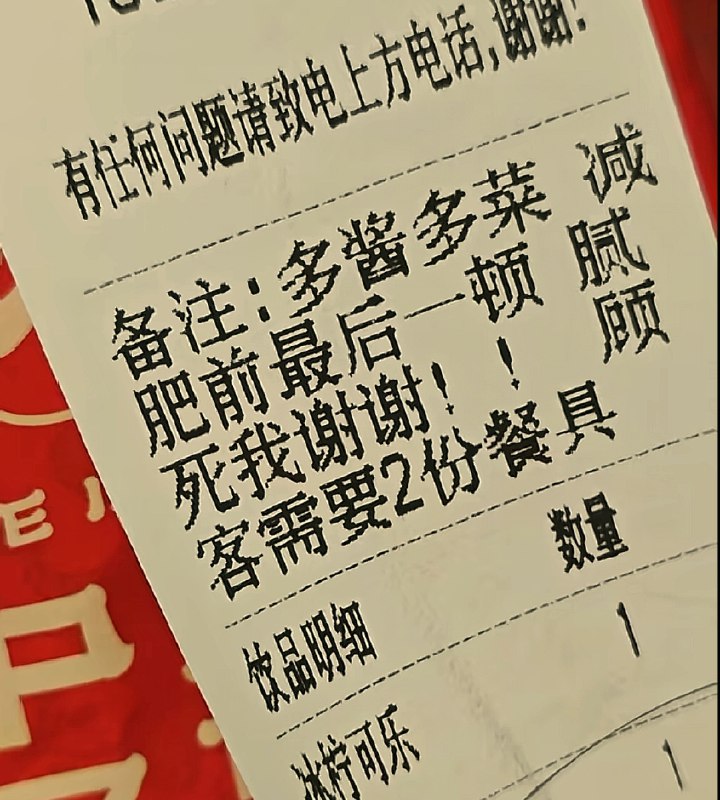 有任何问题请致电上方电话,谢谢!
备注:多酱多菜 减
肥前最后一顿 腻
死我谢谢! ! 顾
客需要2份餐具
数量
饮品明细
1
冰柠可乐
1
E